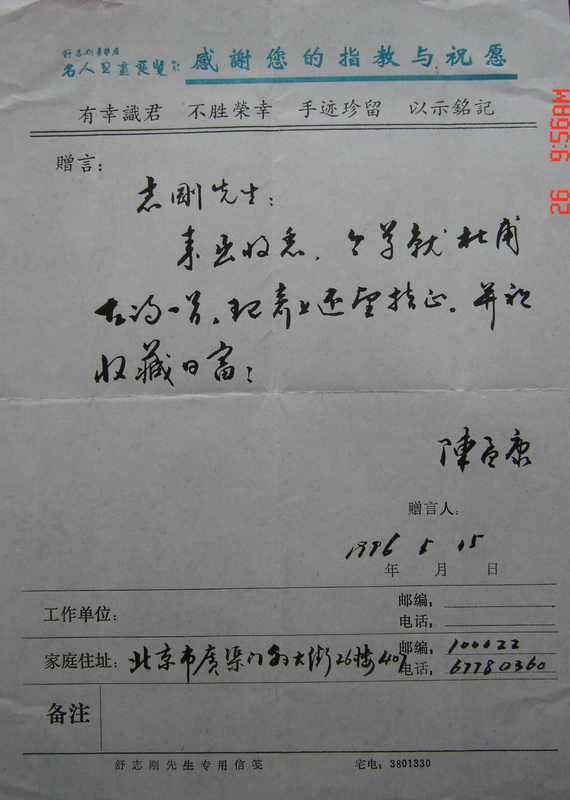 舒志刚
名人
感謝您的指教与祝愿
有幸識君 不胜榮幸 手迹珍留 以示銘記
26 9:56AM
赠言：
志剛先生：
来函收悉，今草就杜甫
古诗一首，现寄上还望指正。并祝
收藏日富！
陳孟康
赠言人：
1996 5 15
年 月 日
工作单位： 邮编：
电话：
家庭住址：北京市廣渠门外大街26楼407 邮编：100022
电话：67780360
备注
舒志刚先生专用信笺 宅电：3801330